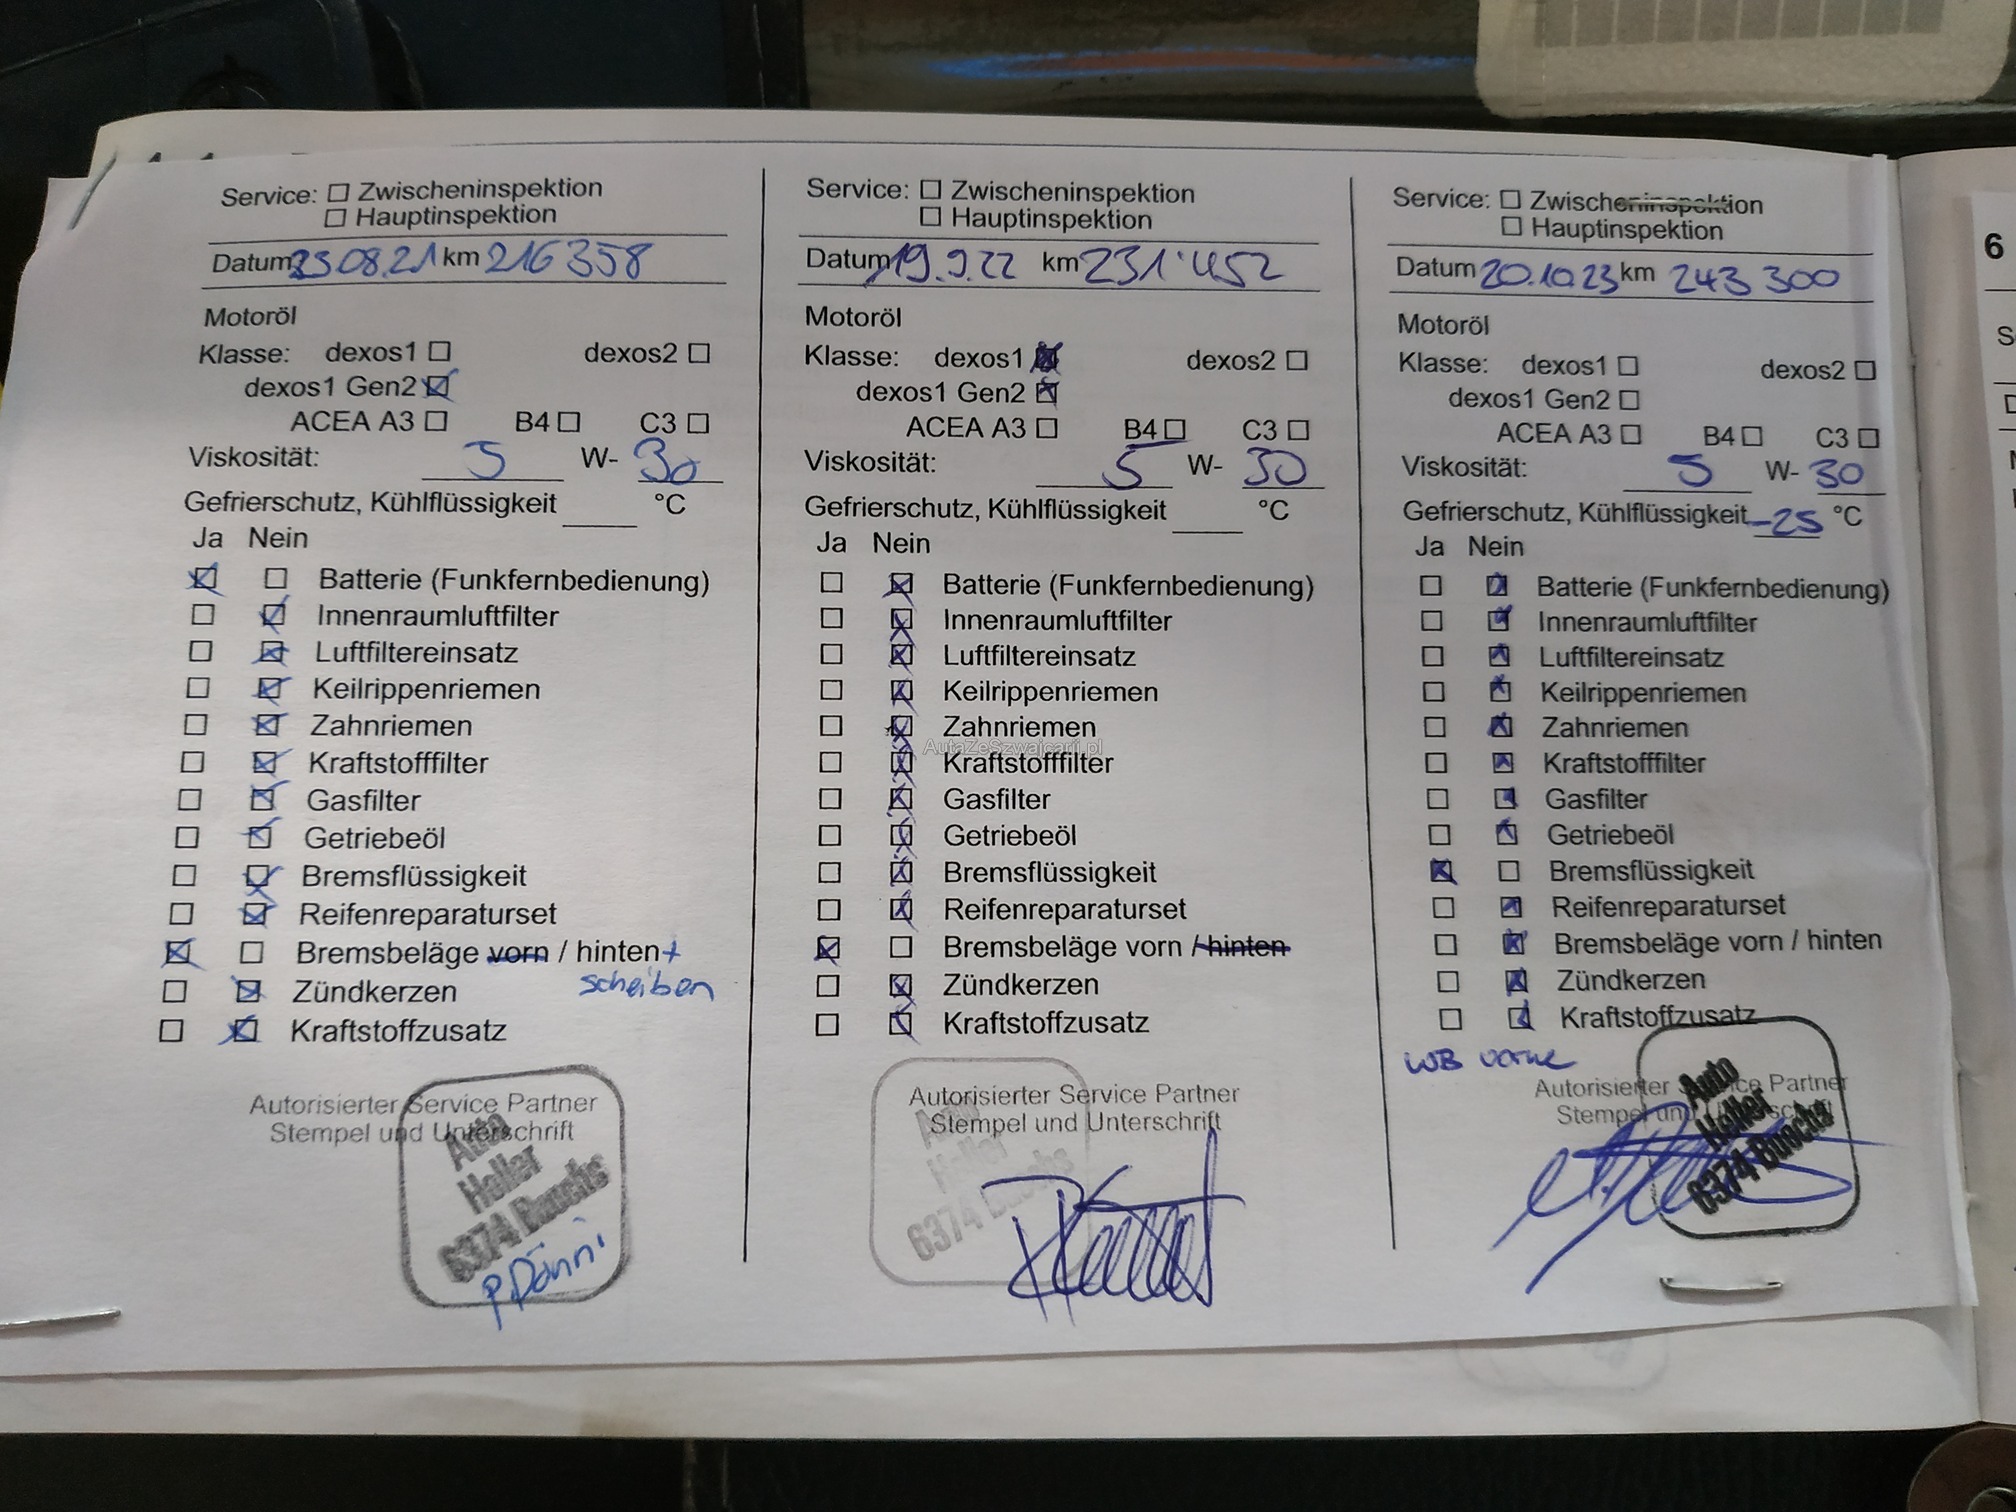 Service: ☐ Zwischeninspektion
☐ Hauptinspektion
Datum 23.08.21 km 216 358
Motoröl
Klasse: dexos1 ☐ dexos2 ☐
dexos1 Gen2 ☒
ACEA A3 ☐ B4 ☐ C3 ☐
Viskosität: 5 W- 30
Gefrierschutz, Kühlflüssigkeit ____ °C
Ja Nein
☒ ☐ Batterie (Funkfernbedienung)
☐ ☒ Innenraumluftfilter
☐ ☒ Luftfiltereinsatz
☐ ☒ Keilrippenriemen
☐ ☒ Zahnriemen
☐ ☒ Kraftstofffilter
☐ ☒ Gasfilter
☐ ☒ Getriebeöl
☐ ☒ Bremsflüssigkeit
☐ ☒ Reifenreparaturset
☒ ☐ Bremsbeläge vorn / hinten +
scheiben
☐ ☒ Zündkerzen
☐ ☒ Kraftstoffzusatz
Autorisierter Service Partner
Stempel und Unterschrift
Auto
Holler
6374 Buochs
P. Dönni
Service: ☐ Zwischeninspektion
☐ Hauptinspektion
Datum 19.9.22 km 231'452
Motoröl
Klasse: dexos1 ☒ dexos2 ☐
dexos1 Gen2 ☒
ACEA A3 ☐ B4 ☐ C3 ☐
Viskosität: 5 W- 30
Gefrierschutz, Kühlflüssigkeit ____ °C
Ja Nein
☐ ☒ Batterie (Funkfernbedienung)
☐ ☒ Innenraumluftfilter
☐ ☒ Luftfiltereinsatz
☐ ☒ Keilrippenriemen
☐ ☒ Zahnriemen
AutaZeSzwajcarii.pl
☐ ☒ Kraftstofffilter
☐ ☒ Gasfilter
☐ ☒ Getriebeöl
☐ ☒ Bremsflüssigkeit
☐ ☒ Reifenreparaturset
☒ ☐ Bremsbeläge vorn / hinten
☐ ☒ Zündkerzen
☐ ☒ Kraftstoffzusatz
Autorisierter Service Partner
Stempel und Unterschrift
Auto
Holler
6374 Buochs
Service: ☐ Zwischeninspektion
☐ Hauptinspektion
Datum 20.10.23 km 243 300
Motoröl
Klasse: dexos1 ☐ dexos2 ☐
dexos1 Gen2 ☐
ACEA A3 ☐ B4 ☐ C3 ☐
Viskosität: 5 W- 30
Gefrierschutz, Kühlflüssigkeit -25 °C
Ja Nein
☐ ☒ Batterie (Funkfernbedienung)
☐ ☒ Innenraumluftfilter
☐ ☒ Luftfiltereinsatz
☐ ☒ Keilrippenriemen
☐ ☒ Zahnriemen
☐ ☒ Kraftstofffilter
☐ ☒ Gasfilter
☐ ☒ Getriebeöl
☒ ☐ Bremsflüssigkeit
☐ ☒ Reifenreparaturset
☐ ☒ Bremsbeläge vorn / hinten
☐ ☒ Zündkerzen
☐ ☒ Kraftstoffzusatz
WB vorne
Autorisierter Service Partner
Stempel und
Auto
Holler
6374 Buochs
6